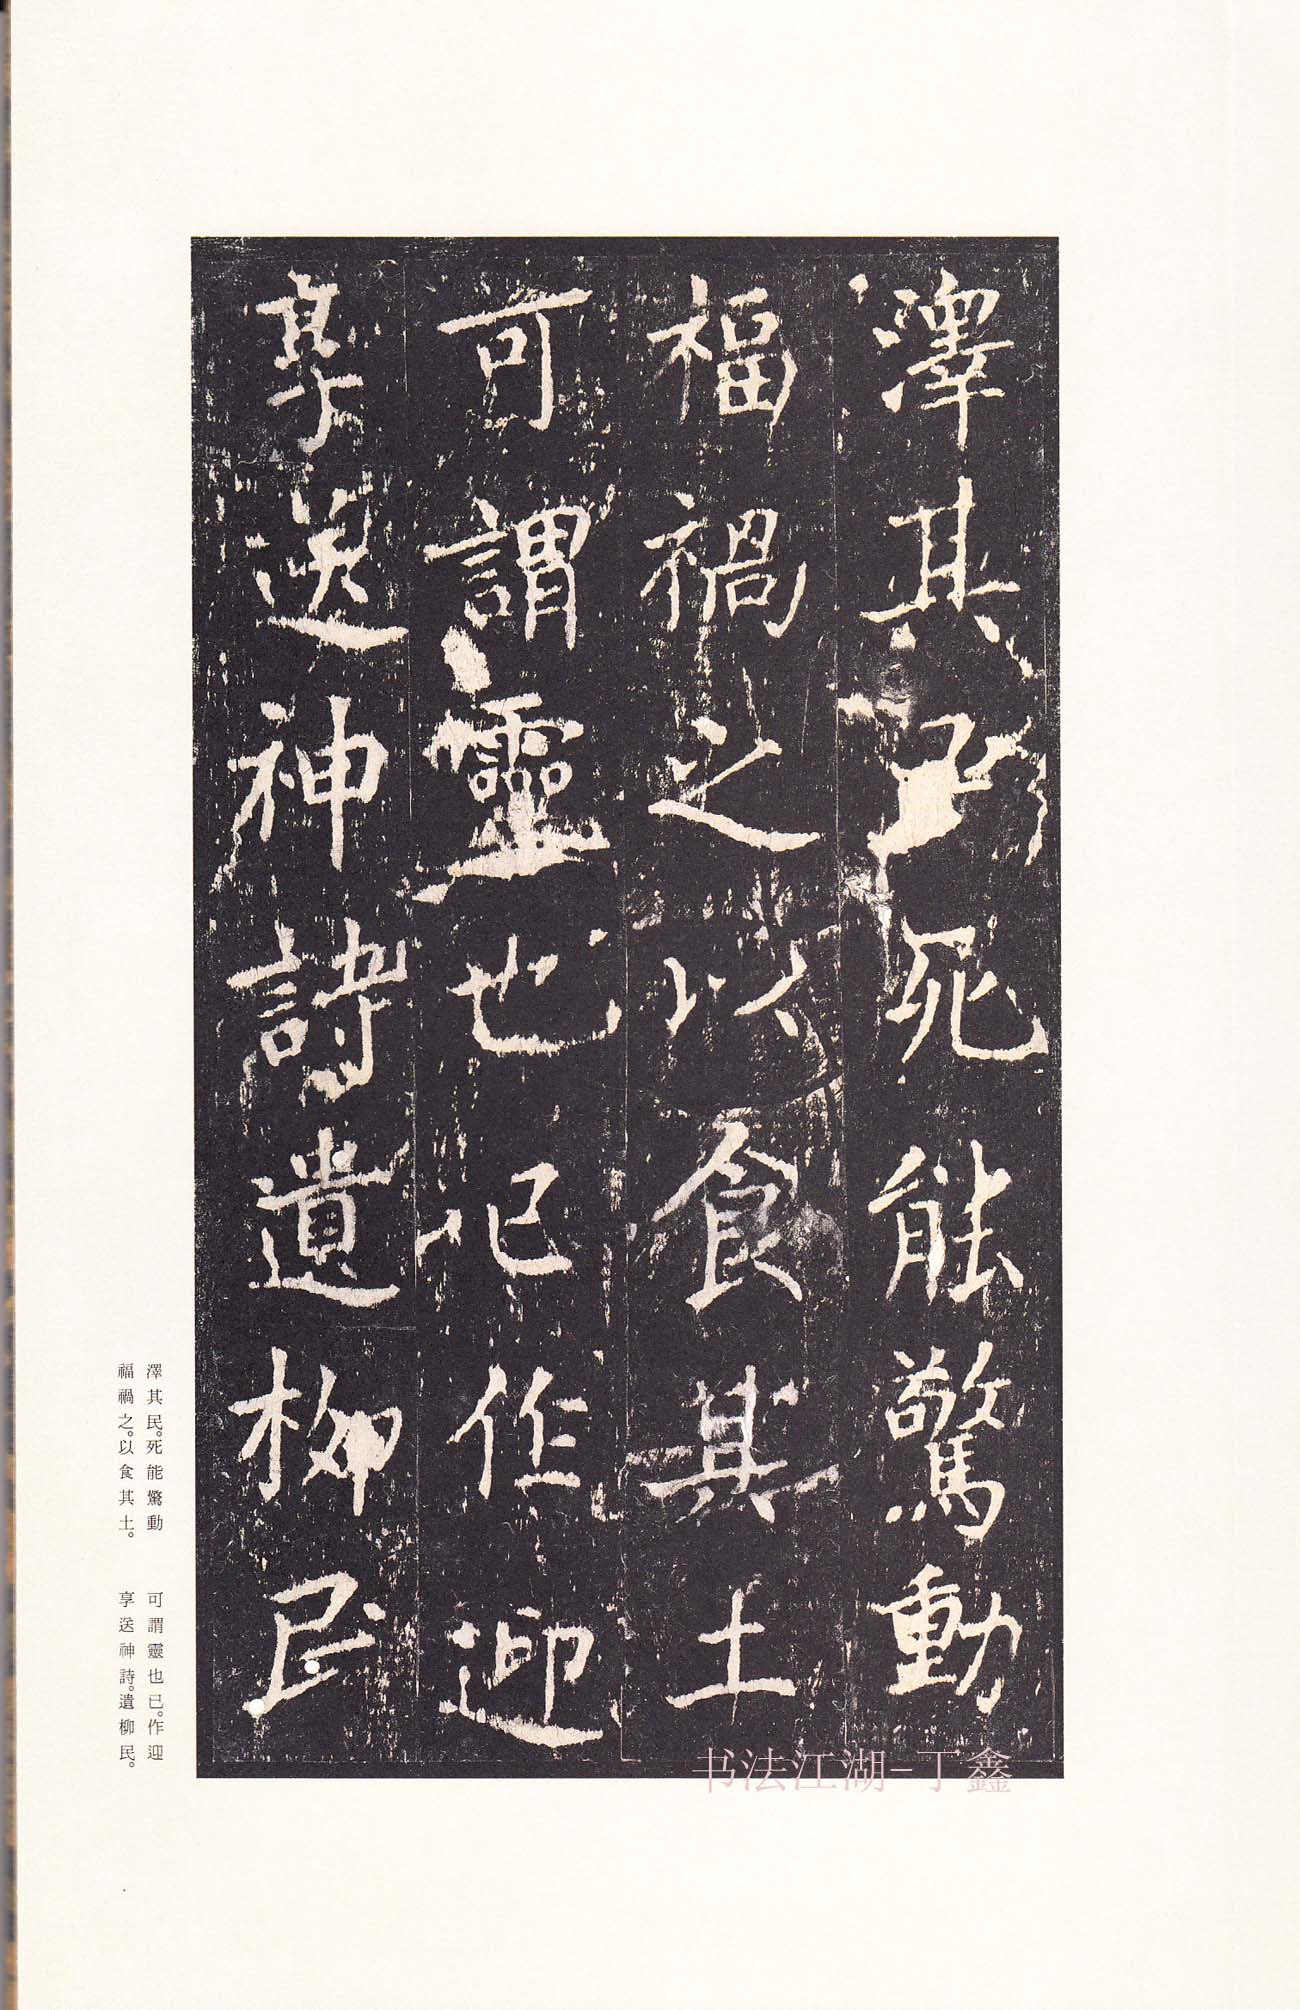 澤其民死能驚動
福禍之以食其土
可謂靈也已作迎
享送神詩遺柳民
澤其民。死能驚動
福禍之。以食其土。
可謂靈也已。作迎
享送神詩。遺柳民。
书法江湖-丁鑫